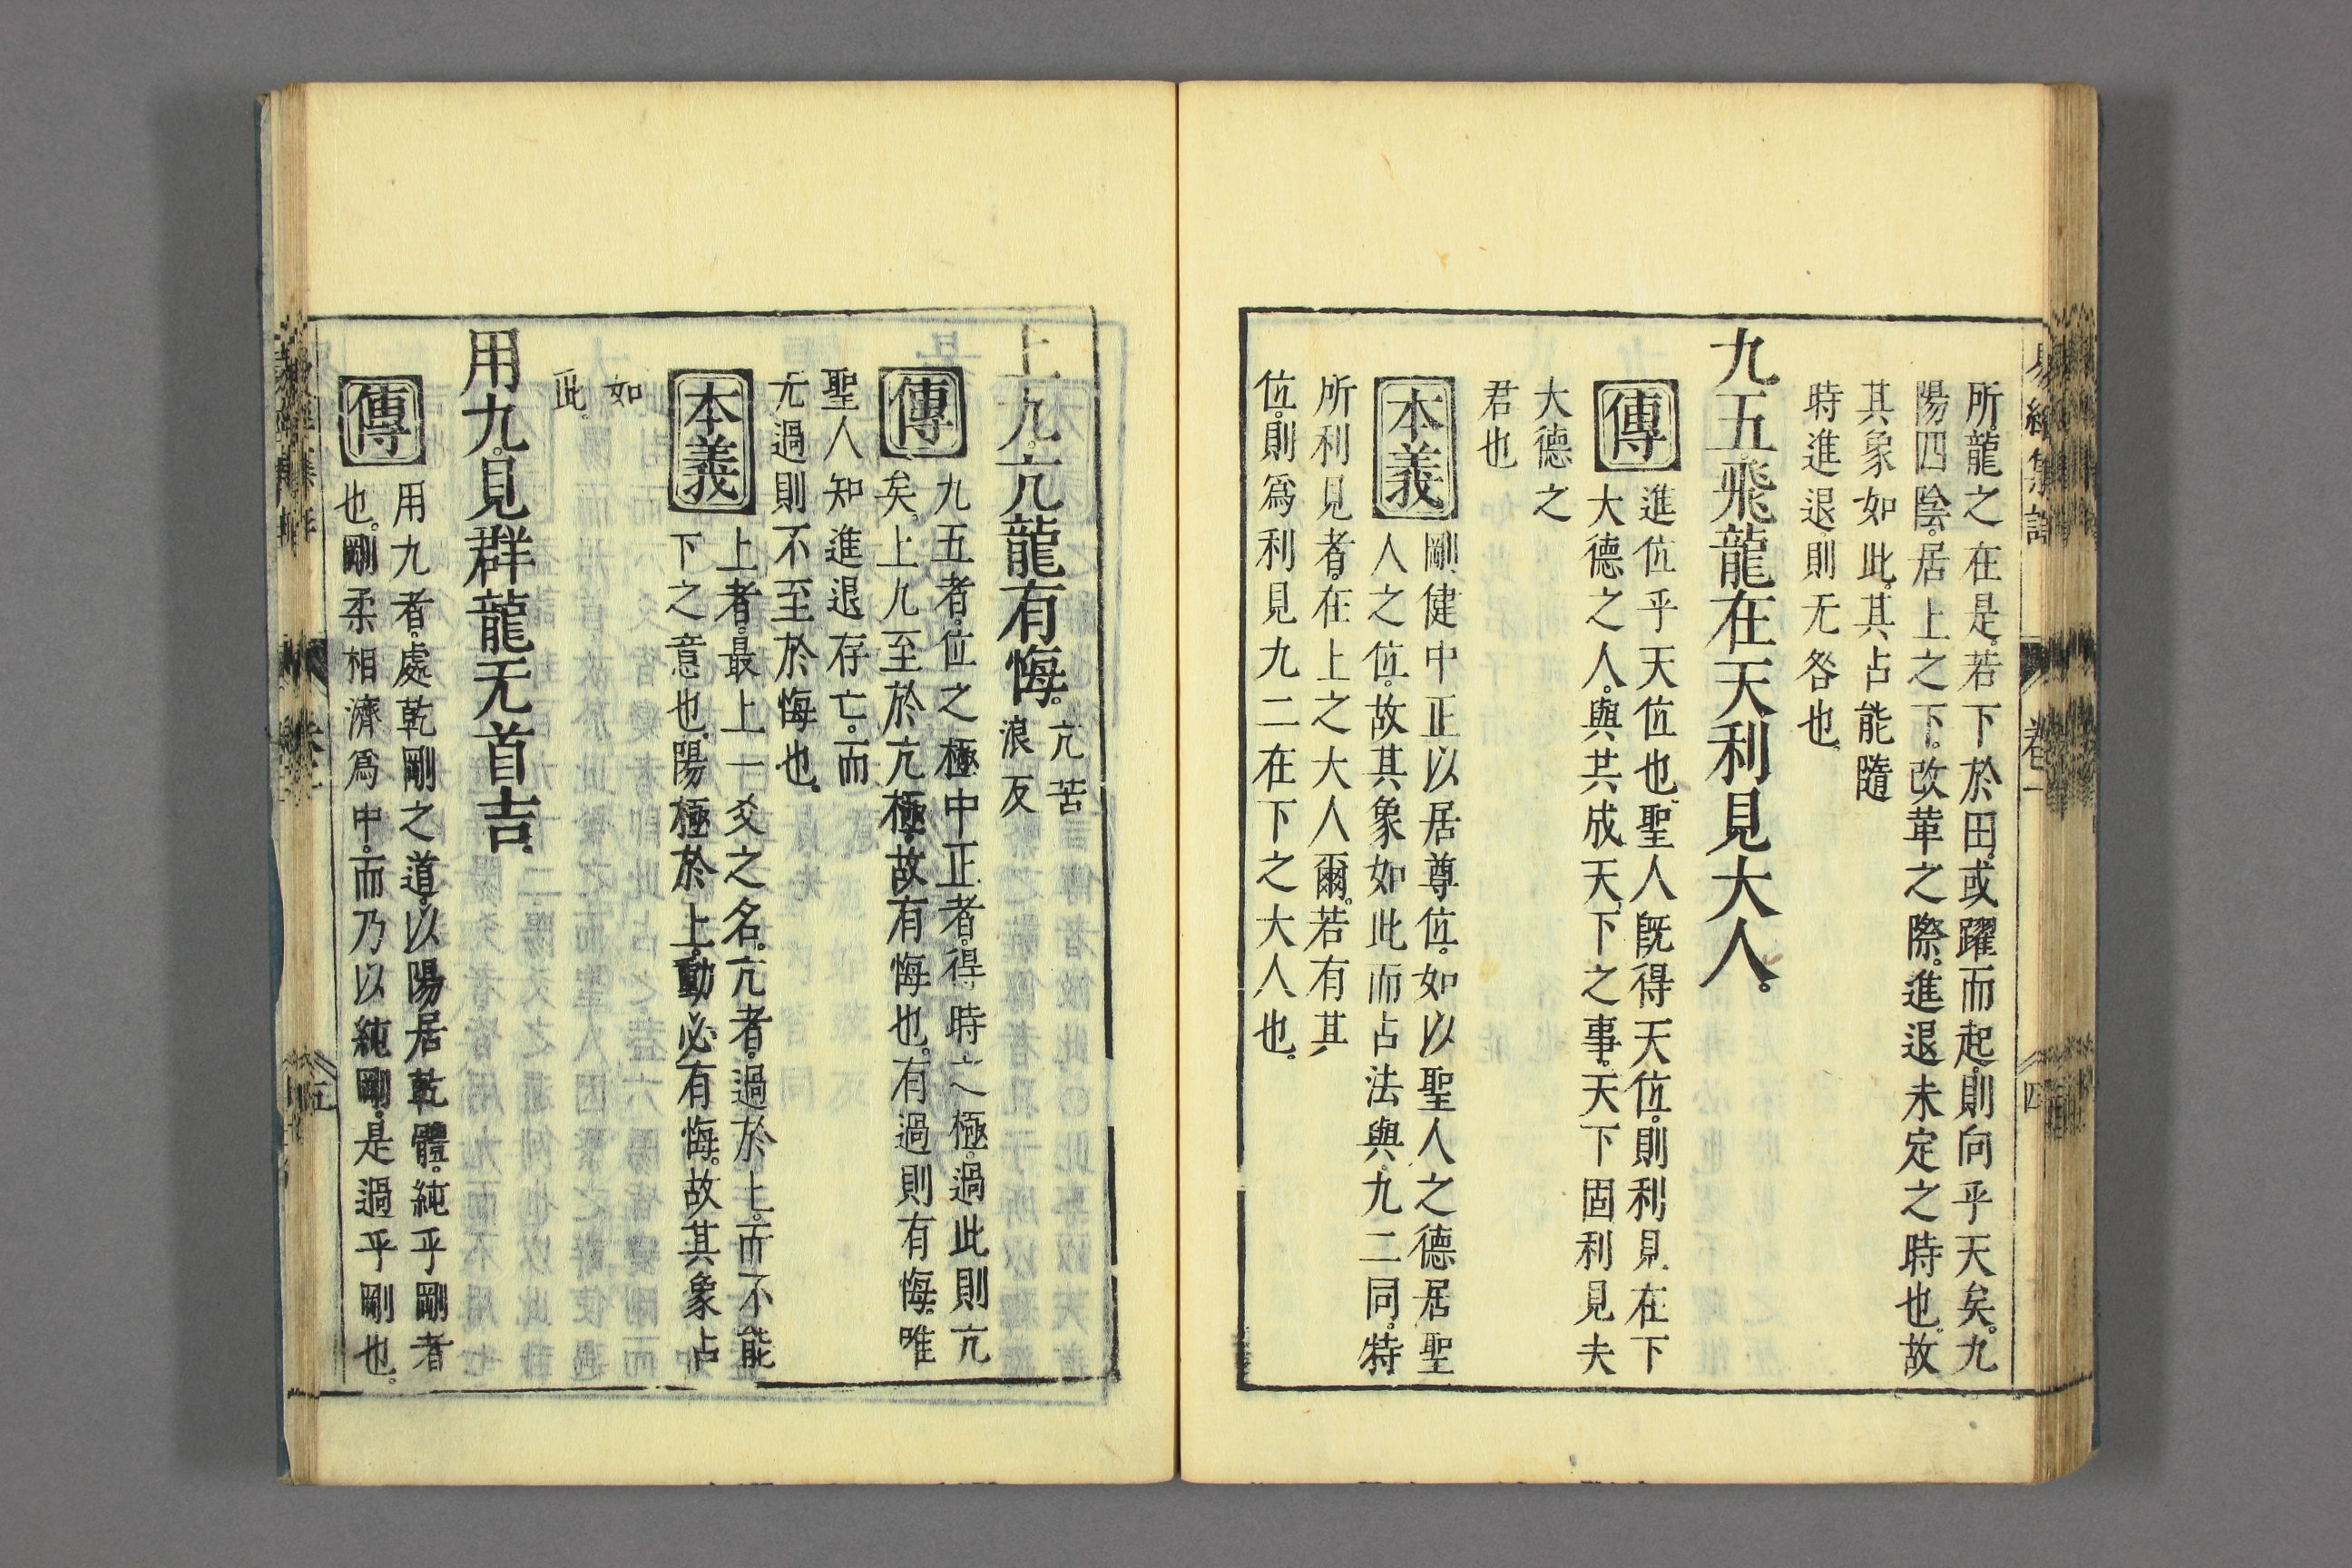 易經集註 卷一 四
所。龍之在是。若下於田。或躍而起。則向乎天矣。九
陽四陰。居上之下。改革之際。進退未定之時也。故
其象如此。其占能隨
時進退。則无咎也。
九五飛龍在天利見大人。
傳
進位乎天位也。聖人旣得天位。則利見在下
大德之人。與共成天下之事。天下固利見夫
大德之
君也
本義
剛健中正以居尊位。如以聖人之德居聖
人之位。故其象如此而占法與九二同。特
所利見者。在上之大人爾。若有其
位。則爲利見九二在下之大人也。
上九。亢龍有悔。
亢苦
浪反
傳
九五者。位之極中正者。得時之極。過此則亢
矣。上九至於亢極。故有悔也。有過則有悔。唯
聖人知進退存亡。而
无過則不至於悔也。
本義
上者。最上一爻之名。亢者。過於上。而不能
下之意也。陽極於上。動必有悔。故其象占
如
此。
用九。見群龍无首吉。
傳
用九者。處乾剛之道。以陽居乾體。純乎剛者
也。剛柔相濟爲中。而乃以純剛。是過乎剛也。
五